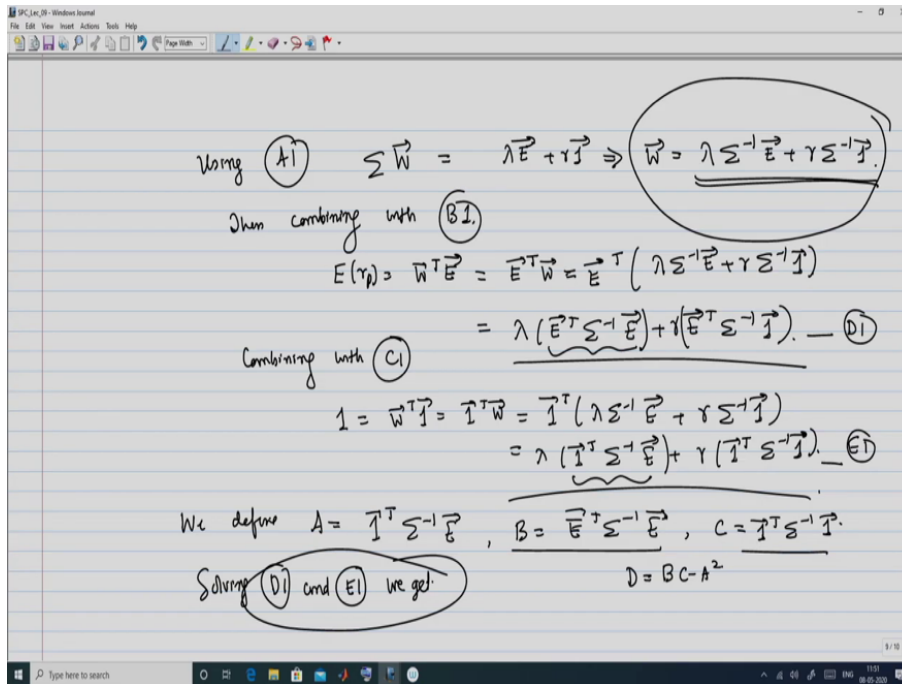 SPC_Lec_09 - Windows Journal
File Edit View Insert Actions Tools Help
Page Width
Using (A1) Σ w⃗ = λE⃗ + γ1⃗ ⇒ w⃗ = λ Σ⁻¹ E⃗ + γ Σ⁻¹ 1⃗.
Then combining with (B1).
E(rₚ) = w⃗ᵀE⃗ = E⃗ᵀw⃗ = E⃗ᵀ ( λΣ⁻¹E⃗ + γ Σ⁻¹1⃗ )
= λ (E⃗ᵀ Σ⁻¹ E⃗) + γ(E⃗ᵀ Σ⁻¹ 1⃗). — (D1)
Combining with (C1)
1 = w⃗ᵀ1⃗ = 1⃗ᵀw⃗ = 1⃗ᵀ ( λΣ⁻¹ E⃗ + γ Σ⁻¹1⃗ )
= λ (1⃗ᵀ Σ⁻¹ E⃗) + γ (1⃗ᵀ Σ⁻¹ 1⃗). — (E1)
We define A = 1⃗ᵀ Σ⁻¹ E⃗ , B = E⃗ᵀ Σ⁻¹ E⃗ , C = 1⃗ᵀ Σ⁻¹ 1⃗.
Solving (D1) and (E1) we get. D = BC-A²
9/10
Type here to search
ENG
11:51
08-05-2020